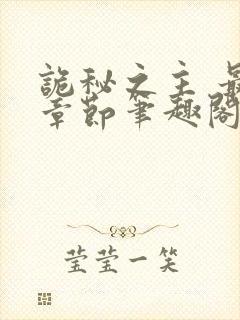 詭秘之主 最
章節筆趣閣
莹莹一笑